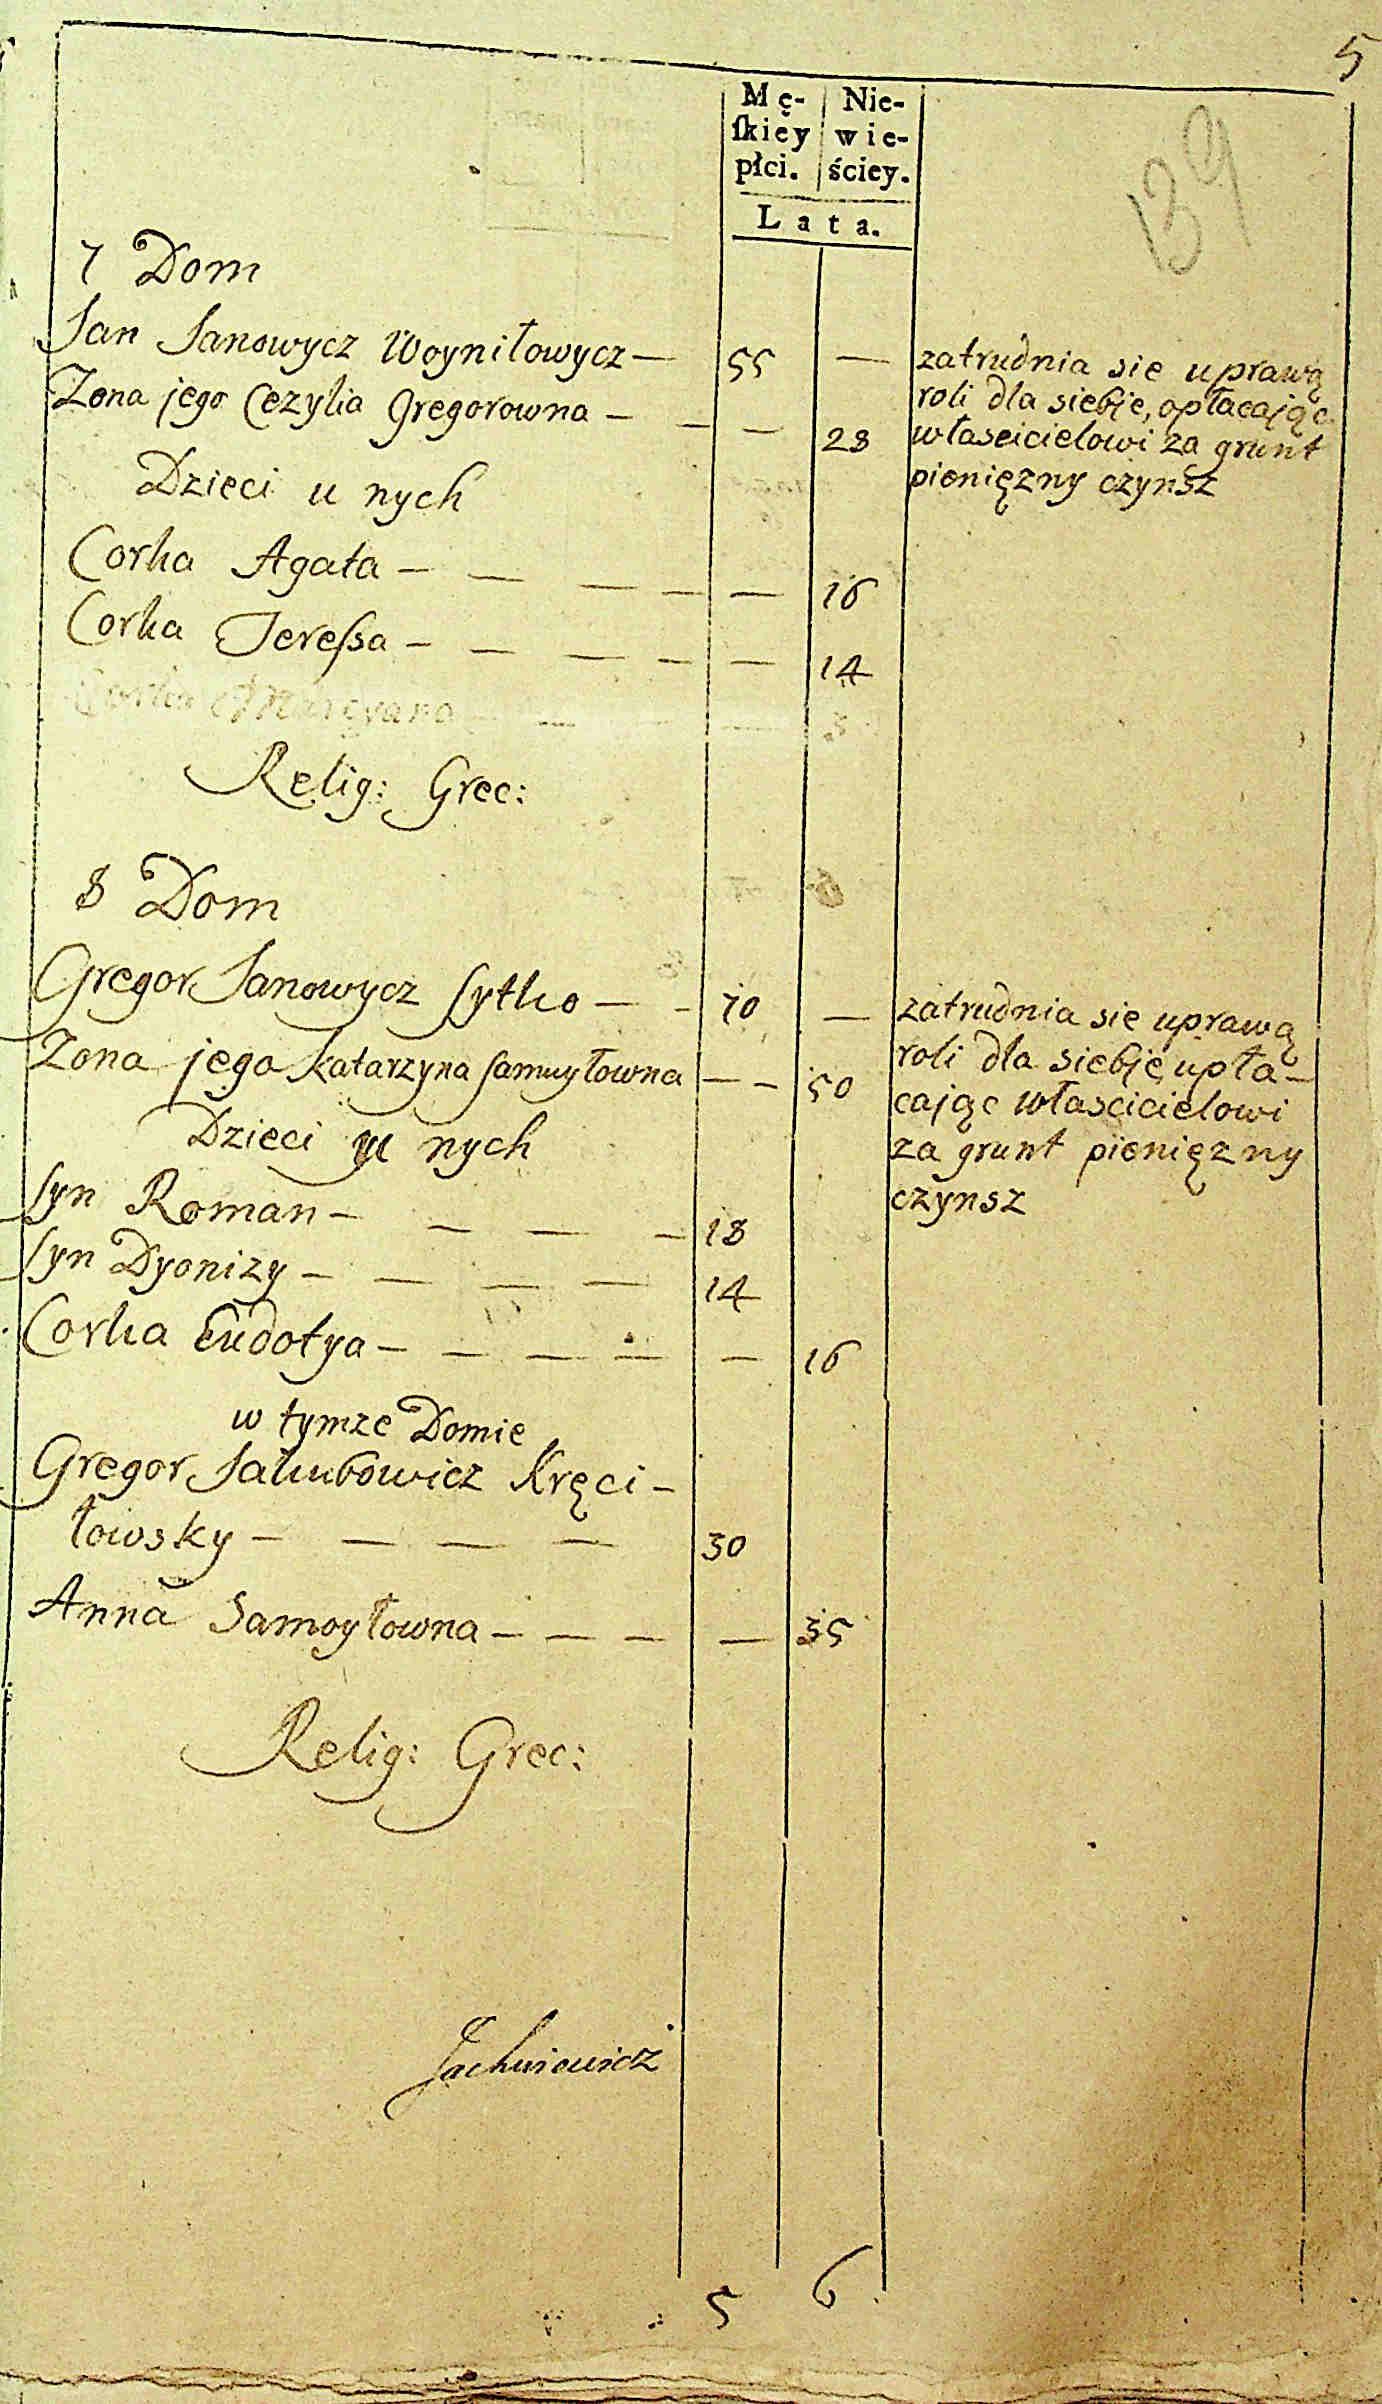 5
139
Mę- Nie-
ſkiey wie-
płci. ściey.
Lata.
7 Dom
Jan Janowycz Woyniłowycz — 55 — zatrudnia sie uprawą
roli dla siebie, opłacając
Zona jego Cezylia Gregorowna — — — 28 włascicielowi za grunt
Dzieci u nych pienięzny czynsz
Corka Agata — — — — — 16
Corka Teressa — — — — — 14
Corka Marcyana — — — — 3
Relig: Grec:
8 Dom
Gregor Janowycz Sytko — - 70 — zatrudnia sie uprawą
roli dla siebie upła-
Zona jego Katarzyna Samuyłowna — - 50 cając włascicielowi
Dzieci u nych za grunt pienięzny
Syn Roman — — — — 18 czynsz
Syn Dyonizy — — — — 14
Corka Eudotya — — — — — 16
w tymze Domie
Gregor Jakubowicz Kręci-
łowsky — — — — 30
Anna Samoyłowna — — — — 35
Relig: Grec:
5 6